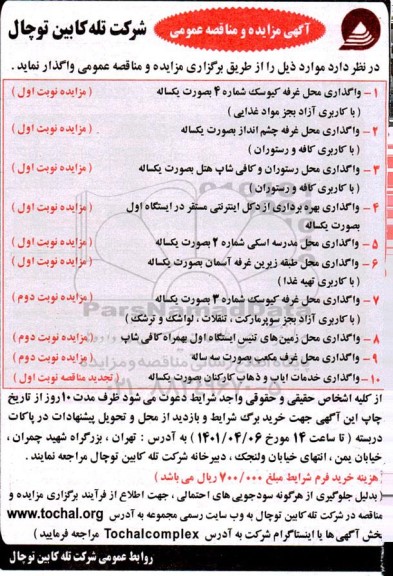 شرکت تله کابین توچال
آگهی مزایده و مناقصه عمومی
در نظر دارد موارد ذیل را از طریق برگزاری مزایده و مناقصه عمومی واگذار نماید .
۱ - واگذاری محل غرفه کیوسک شماره ۴ بصورت یکساله ( مزایده نوبت اول )
( با کاربری آزاد بجز مواد غذایی )
۲ - واگذاری محل غرفه چشم انداز بصورت یکساله ( مزایده نوبت اول )
( با کاربری کافه و رستوران )
۳ - واگذاری محل رستوران و کافی شاپ هتل بصورت یکساله ( مزایده نوبت اول )
( با کاربری کافه و رستوران )
۴ - واگذاری بهره برداری از دکل اینترنتی مستقر در ایستگاه اول ( مزایده نوبت اول )
بصورت یکساله
۵ - واگذاری محل مدرسه اسکی شماره ۲ بصورت یکساله ( مزایده نوبت اول )
۶ - واگذاری محل طبقه زیرین غرفه آسمان بصورت یکساله ( مزایده نوبت اول )
( با کاربری تهیه غذا )
۷ - واگذاری محل غرفه کیوسک شماره ۳ بصورت یکساله ( مزایده نوبت دوم )
( با کاربری آزاد بجز سوپرمارکت ، تنقلات ، لواشک و ترشک )
۸ - واگذاری محل زمین های تنیس ایستگاه اول بهمراه کافی شاپ ( مزایده نوبت دوم )
۹ - واگذاری محل غرف مکعب بصورت سه ساله ( مزایده نوبت دوم )
۱۰ - واگذاری خدمات ایاب و ذهاب کارکنان بصورت یکساله ( تجدید مناقصه نوبت اول )
از کلیه اشخاص حقیقی و حقوقی واجد شرایط دعوت می شود ظرف مدت ۱۰ روز از تاریخ
چاپ این آگهی جهت خرید برگ شرایط و بازدید از محل و تحویل پیشنهادات در پاکات
دربسته ( تا ساعت ۱۴ مورخ ۱۴۰۱/۰۴/۰۶ ) به آدرس : تهران ، بزرگراه شهید چمران ،
خیابان یمن ، انتهای خیابان ولنجک ، دبیرخانه شرکت تله کابین توچال مراجعه نمایند .
( هزینه خرید فرم شرایط مبلغ ۷۰۰/۰۰۰ ریال می باشد )
( بدلیل جلوگیری از هرگونه سودجویی های احتمالی ، جهت اطلاع از فرآیند برگزاری مزایده و
مناقصه در شرکت تله کابین توچال به وب سایت رسمی مجموعه به آدرس www.tochal.org
بخش آگهی ها یا اینستاگرام شرکت به آدرس Tochalcomplex مراجعه فرمایید )
روابط عمومی شرکت تله کابین توچال